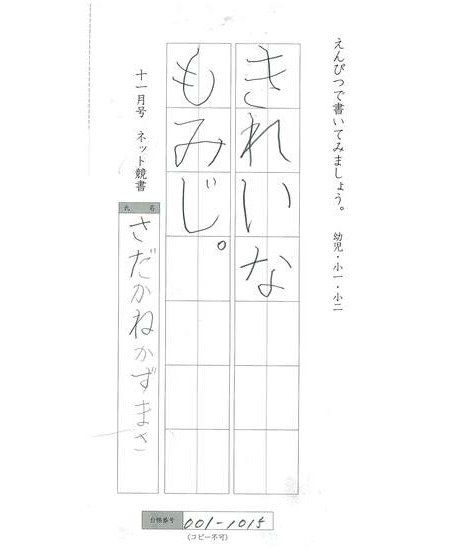 えんぴつで書いてみましょう。 幼児・小一・小二
きれいな
もみじ。
十一月号 ネット競書
氏名
さだかねかずまさ
台帳番号 001-1015
(コピー不可)